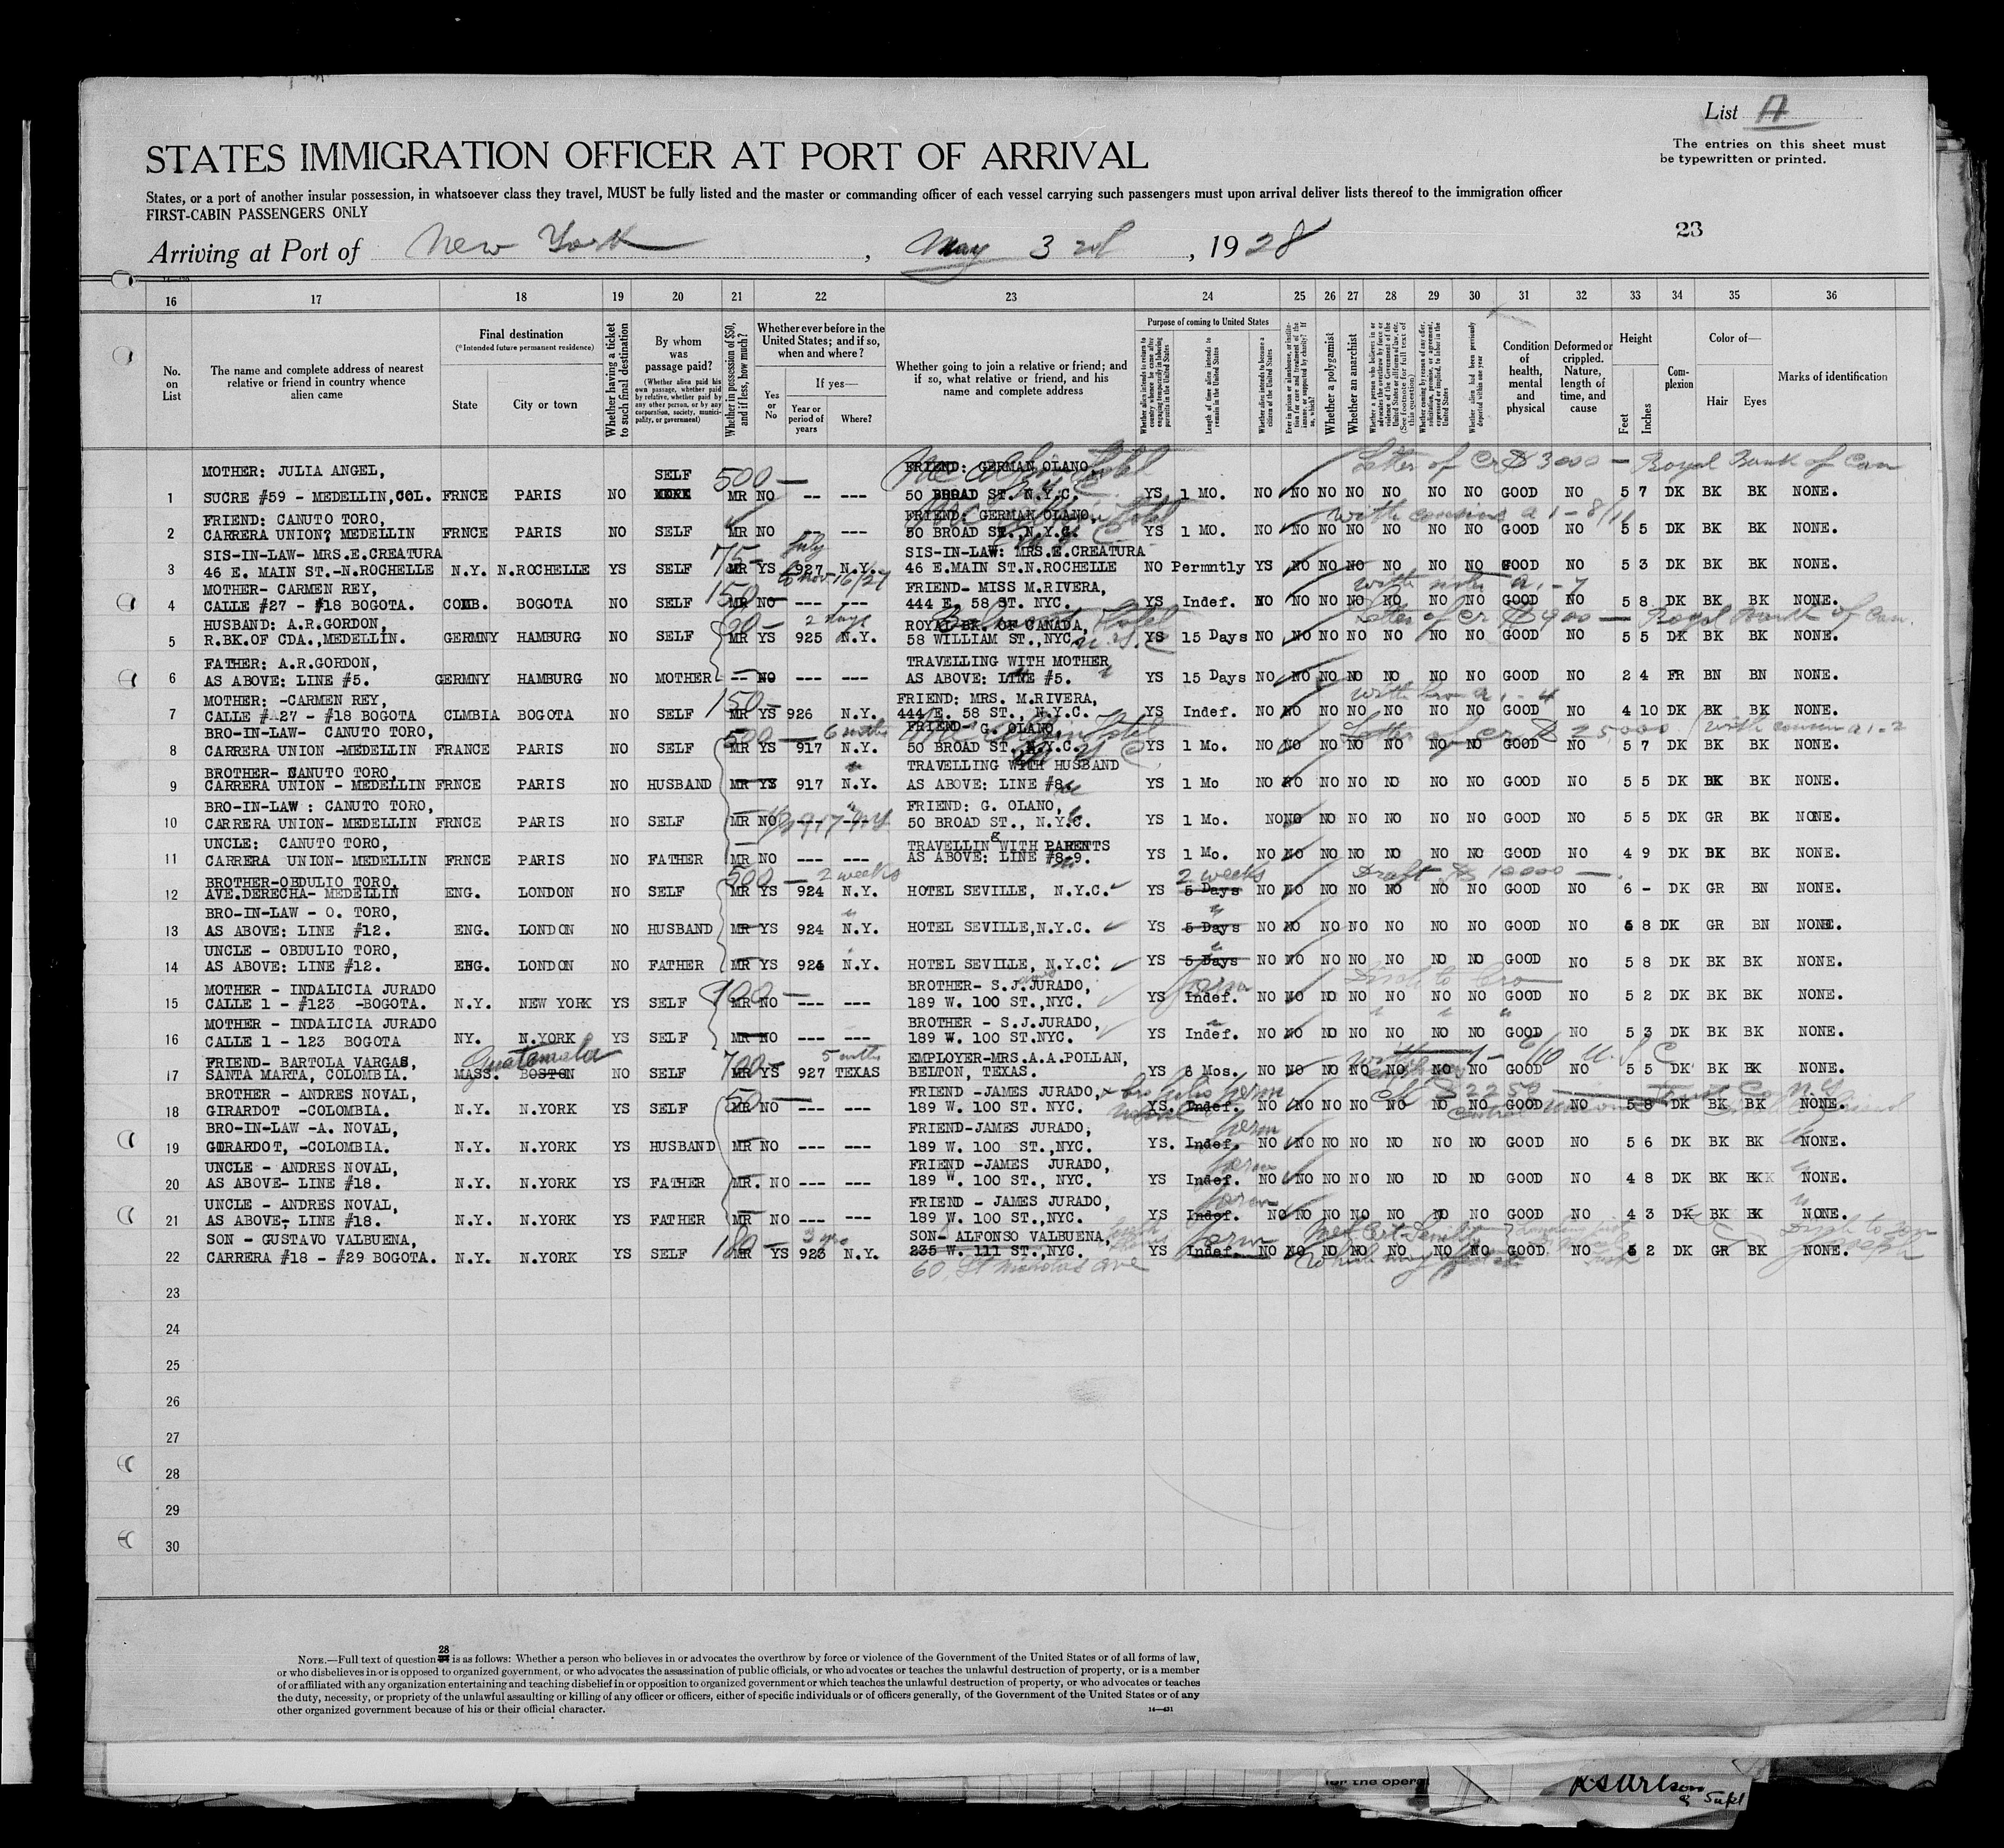 List A
The entries on this sheet must
be typewritten or printed.
STATES IMMIGRATION OFFICER AT PORT OF ARRIVAL
States, or a port of another insular possession, in whatsoever class they travel, MUST be fully listed and the master or commanding officer of each vessel carrying such passengers must upon arrival deliver lists thereof to the immigration officer
FIRST-CABIN PASSENGERS ONLY
23
Arriving at Port of New York, May 3rd, 1928
16 17 18 19 20 21 22 23 24 25 26 27 28 29 30 31 32 33 34 35 36
No. on List
The name and complete address of nearest relative or friend in country whence alien came
Final destination
(*Intended future permanent residence)
State
City or town
Whether having a ticket to such final destination
By whom was passage paid?
(Whether alien paid his own passage, whether paid by relative, whether paid by any other person, or by any corporation, society, municipality, or government)
Whether in possession of $50, and if less, how much?
Whether ever before in the United States; and if so, when and where?
Yes or No
If yes—
Year or period of years
Where?
Whether going to join a relative or friend; and if so, what relative or friend, and his name and complete address
Purpose of coming to United States
Whether alien intends to return to country whence he came after engaging temporarily in laboring pursuits in the United States
Length of time alien intends to remain in the United States
Whether alien intends to become a citizen of the United States
Whether a polygamist
Whether an anarchist
Condition of health, mental and physical
Deformed or crippled. Nature, length of time, and cause
Height
Feet
Inches
Complexion
Color of—
Hair
Eyes
Marks of identification
MOTHER: JULIA ANGEL, SELF 500— FRIEND: GERMAN OLANO, Letter of Cr $3000 — Royal Bank of Can
1 SUCRE #59 - MEDELLIN, COL. FRNCE PARIS NO MR NO -- --- 50 BROAD ST. N.Y.C. YS 1 MO. NO NO NO NO NO NO NO GOOD NO 5 7 DK BK BK NONE.
FRIEND: CANUTO TORO, FRIEND: GERMAN OLANO, with cousins
2 CARRERA UNION? MEDELLIN FRNCE PARIS NO SELF MR NO --- --- 50 BROAD ST., N.Y.C. YS 1 MO. NO NO NO NO NO NO NO GOOD NO 5 5 DK BK BK NONE.
SIS-IN-LAW- MRS.E.CREATURA 75— July SIS-IN-LAW: MRS.E.CREATURA
3 46 E. MAIN ST.-N.ROCHELLE N.Y. N.ROCHELLE YS SELF MR YS 927 N.Y. 46 E.MAIN ST.N.ROCHELLE NO Permntly YS NO NO NO NO NO NO GOOD NO 5 3 DK BK BK NONE.
to Nov 16/27
MOTHER- CARMEN REY, 150— FRIEND- MISS M.RIVERA,
4 CALLE #27 - #18 BOGOTA. COMB. BOGOTA NO SELF MR NO --- --- 444 E. 58 ST. NYC. YS Indef. NO NO NO NO NO NO NO GOOD NO 5 8 DK BK BK NONE.
HUSBAND: A.R.GORDON, 2 days ROYAL BK. OF CANADA, Letter of Cr $900 — Royal Bank of Can.
5 R.BK.OF CDA.,MEDELLIN. GERMNY HAMBURG NO SELF MR YS 925 N.Y. 58 WILLIAM ST.,NYC YS 15 Days NO NO NO NO NO NO NO GOOD NO 5 5 DK BK BK NONE.
FATHER: A.R.GORDON, TRAVELLING WITH MOTHER
6 AS ABOVE: LINE #5. GERMNY HAMBURG NO MOTHER -- NO --- --- AS ABOVE: LINE #5. YS 15 Days NO NO NO NO NO NO NO GOOD NO 2 4 FR BN BN NONE.
MOTHER: -CARMEN REY, 150— FRIEND: MRS. M.RIVERA,
7 CALLE # 27 - #18 BOGOTA CLMBIA BOGOTA NO SELF MR YS 926 N.Y. 444 E. 58 ST., N.Y.C. YS Indef. NO NO NO NO NO NO NO GOOD NO 4 10 DK BK BK NONE.
BRO-IN-LAW- CANUTO TORO, 500— 6 mths FRIEND- G. OLANO, Letter of Cr $25,000 (with cousin a1-2
8 CARRERA UNION -MEDELLIN FRANCE PARIS NO SELF MR YS 917 N.Y. 50 BROAD ST.,N.Y.C. YS 1 Mo. NO NO NO NO NO NO NO GOOD NO 5 7 DK BK BK NONE.
BROTHER- CANUTO TORO, TRAVELLING WITH HUSBAND
9 CARRERA UNION - MEDELLIN FRNCE PARIS NO HUSBAND MR YS 917 N.Y. AS ABOVE: LINE #8. YS 1 Mo NO NO NO NO NO NO NO GOOD NO 5 5 DK BK BK NONE.
BRO-IN-LAW : CANUTO TORO, FRIEND: G. OLANO,
10 CARRERA UNION- MEDELLIN FRNCE PARIS NO SELF MR NO --- --- 50 BROAD ST., N.Y.C. YS 1 Mo. NO NO NO NO NO NO NO GOOD NO 5 5 DK GR BK NONE.
UNCLE: CANUTO TORO, TRAVELLING WITH PARENTS
11 CARRERA UNION- MEDELLIN FRNCE PARIS NO FATHER MR NO --- --- AS ABOVE: LINE #8-9. YS 1 Mo. NO NO NO NO NO NO NO GOOD NO 4 9 DK BK BK NONE.
BROTHER-OBDULIO TORO, 500— 2 weeks 2 weeks Draft $10000 —
12 AVE.DERECHA- MEDELLIN ENG. LONDON NO SELF MR YS 924 N.Y. HOTEL SEVILLE, N.Y.C. YS 5 Days NO NO NO NO NO NO NO GOOD NO 6 - DK GR BN NONE.
BRO-IN-LAW - O. TORO,
13 AS ABOVE: LINE #12. ENG. LONDON NO HUSBAND MR YS 924 N.Y. HOTEL SEVILLE,N.Y.C. YS 5 Days NO NO NO NO NO NO NO GOOD NO 5 8 DK GR BN NONE.
UNCLE - OBDULIO TORO,
14 AS ABOVE: LINE #12. ENG. LONDON NO FATHER MR YS 924 N.Y. HOTEL SEVILLE, N.Y.C. YS 5 Days NO NO NO NO NO NO NO GOOD NO 5 8 DK BK BK NONE.
MOTHER - INDALICIA JURADO BROTHER- S.J.JURADO, Disch to Bro
15 CALLE 1 - #123 -BOGOTA. N.Y. NEW YORK YS SELF MR NO --- --- 189 W. 100 ST.,NYC. YS Indef. NO NO NO NO NO NO NO GOOD NO 5 2 DK BK BK NONE.
MOTHER - INDALICIA JURADO BROTHER - S.J.JURADO,
16 CALLE 1 - 123 BOGOTA NY. N.YORK YS SELF MR NO --- --- 189 W. 100 ST.NYC. YS Indef. NO NO NO NO NO NO NO GOOD NO 5 3 DK BK BK NONE.
FRIEND- BARTOLA VARGAS, Guatemala 700— 5 mths EMPLOYER-MRS.A.A.POLLAN,
17 SANTA MARTA, COLOMBIA. MASS. BOSTON NO SELF MR YS 927 TEXAS BELTON, TEXAS. YS 6 Mos. NO NO NO NO NO NO NO GOOD NO 5 5 DK BK BK NONE.
BROTHER - ANDRES NOVAL, 50— FRIEND -JAMES JURADO, perm
18 GIRARDOT -COLOMBIA. N.Y. N.YORK YS SELF MR NO --- --- 189 W. 100 ST. NYC. YS. Indef. NO NO NO NO NO NO NO GOOD NO 5 8 DK BK BK NONE.
BRO-IN-LAW -A. NOVAL, FRIEND-JAMES JURADO, perm
19 GIRARDOT, -COLOMBIA. N.Y. N.YORK YS HUSBAND MR NO --- --- 189 W. 100 ST.,NYC. YS. Indef. NO NO NO NO NO NO NO GOOD NO 5 6 DK BK BK NONE.
UNCLE - ANDRES NOVAL, FRIEND -JAMES JURADO, perm
20 AS ABOVE- LINE #18. N.Y. N.YORK YS FATHER MR. NO --- --- 189 W. 100 ST., NYC. YS Indef. NO NO NO NO NO NO NO GOOD NO 4 8 DK BK BK NONE.
UNCLE - ANDRES NOVAL, FRIEND - JAMES JURADO, perm
21 AS ABOVE, LINE #18. N.Y. N.YORK YS FATHER MR NO --- --- 189 W. 100 ST.,NYC. YS Indef. NO NO NO NO NO NO NO GOOD NO 4 3 DK BK BK NONE.
SON - GUSTAVO VALBUENA, 3 yrs SON- ALFONSO VALBUENA, perm Med Cert-Senility
22 CARRERA #18 - #29 BOGOTA. N.Y. N.YORK YS SELF MR YS 923 N.Y. 235 W. 111 ST.,NYC. YS Indef. NO NO NO NO NO NO NO GOOD NO 5 2 DK GR BK NONE.
60 St Nicholas ave
23
24
25
26
27
28
29
30
28
NOTE.—Full text of question is as follows: Whether a person who believes in or advocates the overthrow by force or violence of the Government of the United States or of all forms of law,
or who disbelieves in or is opposed to organized government, or who advocates the assassination of public officials, or who advocates or teaches the unlawful destruction of property, or is a member
of or affiliated with any organization entertaining and teaching disbelief in or opposition to organized government or which teaches the unlawful destruction of property, or who advocates or teaches
the duty, necessity, or propriety of the unlawful assaulting or killing of any officer or officers, either of specific individuals or of officers generally, of the Government of the United States or of any
other organized government because of his or their official character.
14—431
for the opera